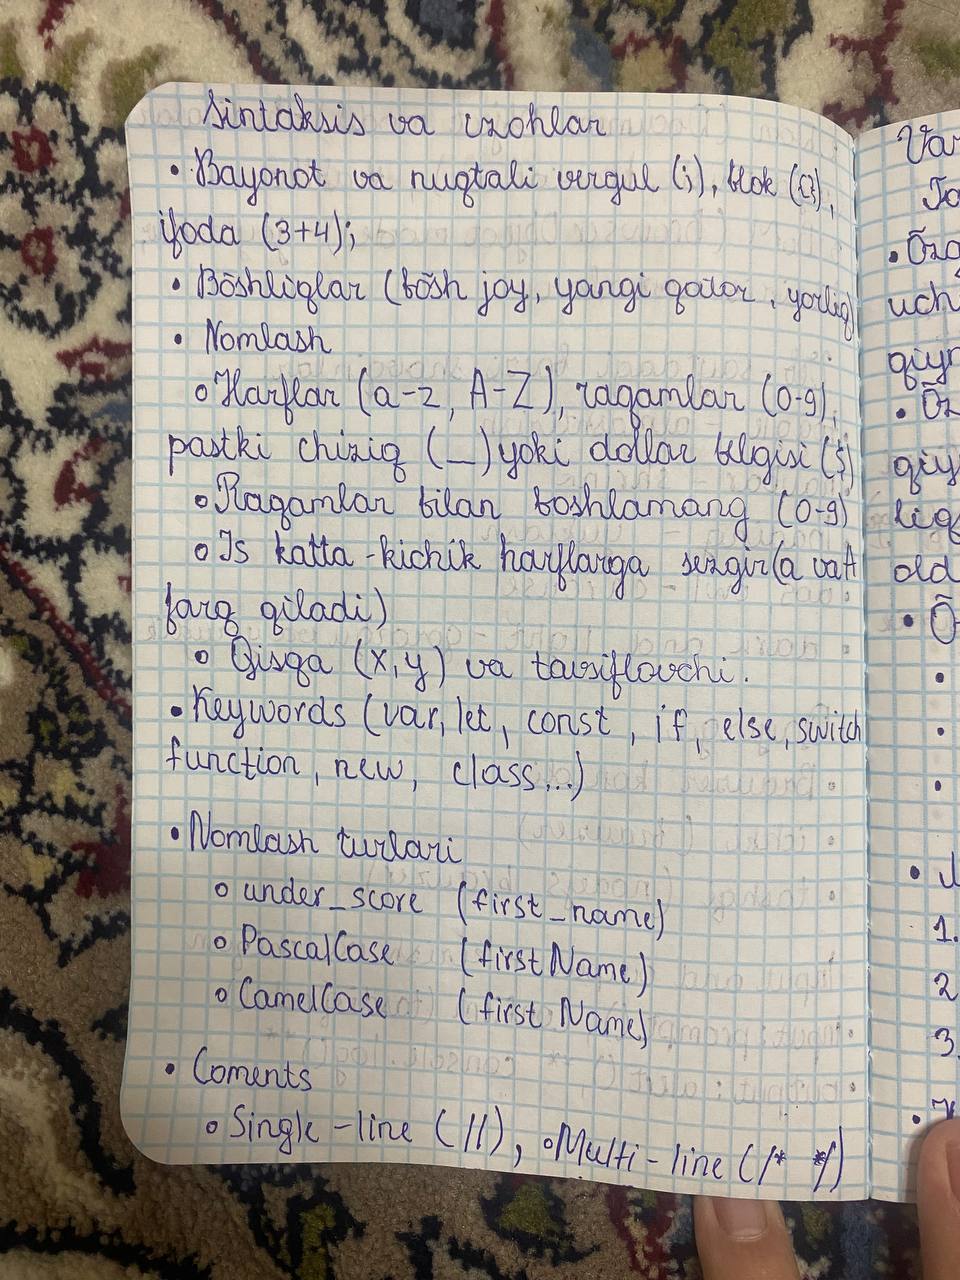 Sintaksis va izohlar
• Bayonot va nuqtali vergul (;), blok ({}),
ifoda (3+4);
• Bõshliqlar (bõsh joy, yangi qator, yorliq)
• Nomlash
o Harflar (a-z, A-Z), raqamlar (0-9),
pastki chiziq (_) yoki dollar belgisi ($)
o Raqamlar bilan boshlamang (0-9)
o Js katta-kichik harflarga sezgir (a va A
farq qiladi)
o Qisqa (x,y) va tavsiflovchi.
• Keywords (var, let, const, if, else, switch
function, new, class...)
• Nomlash turlari
o under_score (first_name)
o PascalCase (firstName)
o CamelCase (first Name)
• Coments
o Single-line (//), o Multi-line (/* */)
Var
To
• Õzg
uch
qiy
• Õz
qiy
liq
old
• Õ
1.
2
3.